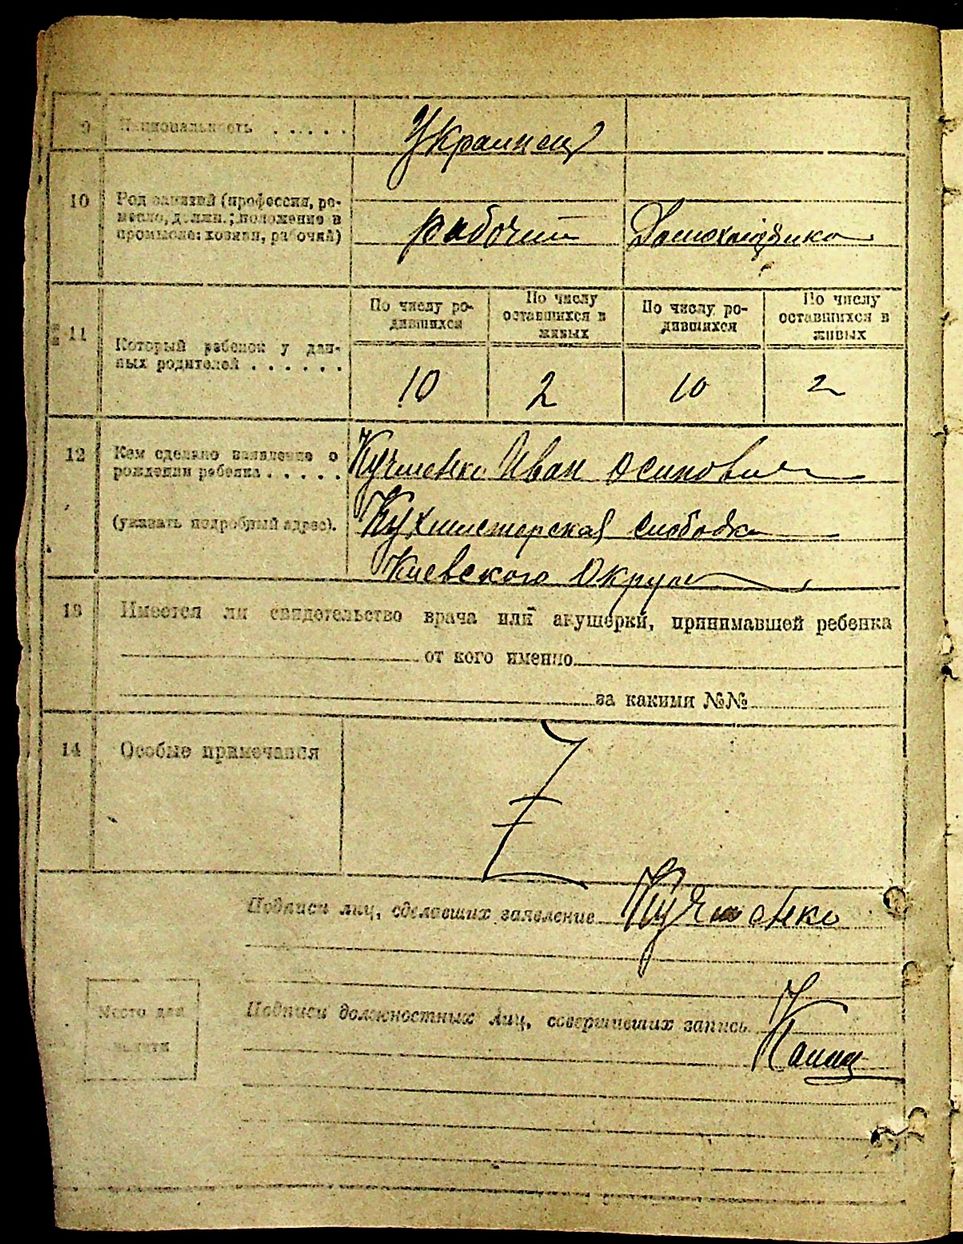 9 Национальность . . . . . Украинец
10 Род занятий (профессия, ре-
месло, должн.; положение в
промысле: хозяин, рабочий)
рабочий Домохозяйка
По числу ро-
дившихся
По числу
оставшихся в
живых
По числу ро-
дившихся
По числу
оставшихся в
живых
11 Который ребенок у дан-
ных родителей . . . . . .
10 2 10 2
12 Кем сделано заявление о
рождении ребенка . . . . .
(указать подробный адрес).
Иван Осипович
Кухмистерская слободка
Киевского Округа
13 Имеется ли свидетельство врача или акушерки, принимавшей ребенка
от кого именно
за какими №№
14 Особые примечания
Z
Подписи лиц, сделавших заявление
Место для
печати
Подписи должностных лиц, совершивших запись